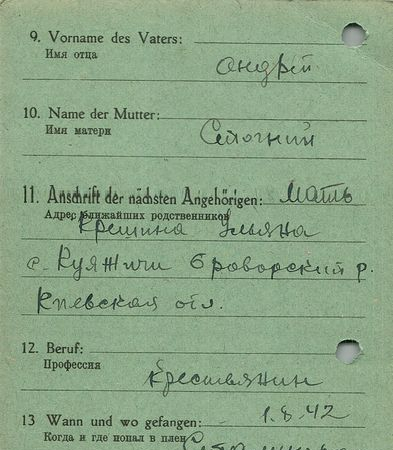 9. Vorname des Vaters:
Имя отца
Андрей
10. Name der Mutter:
Имя матери
11. Anschrift der nächsten Angehörigen: Мать
Адрес ближайших родственников
Ульяна
с. Броворский р.
Киевская отл.
12. Beruf:
Профессия
Крестьянин
13 Wann und wo gefangen: 1.8.42
Когда и где попал в плен